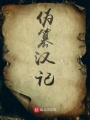 伪篡汉记